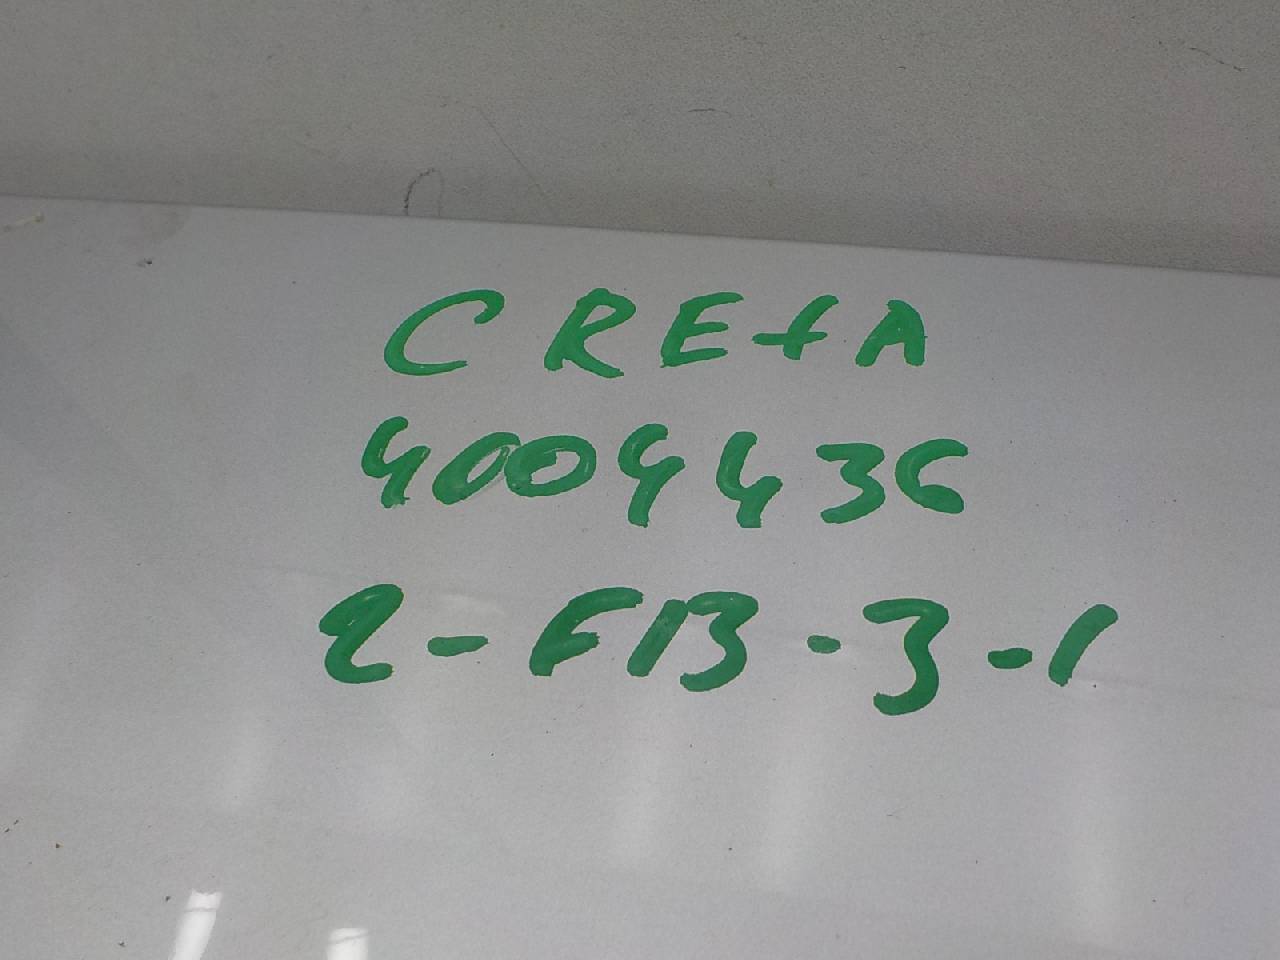 CREtA
4004436
2-F13-3-1